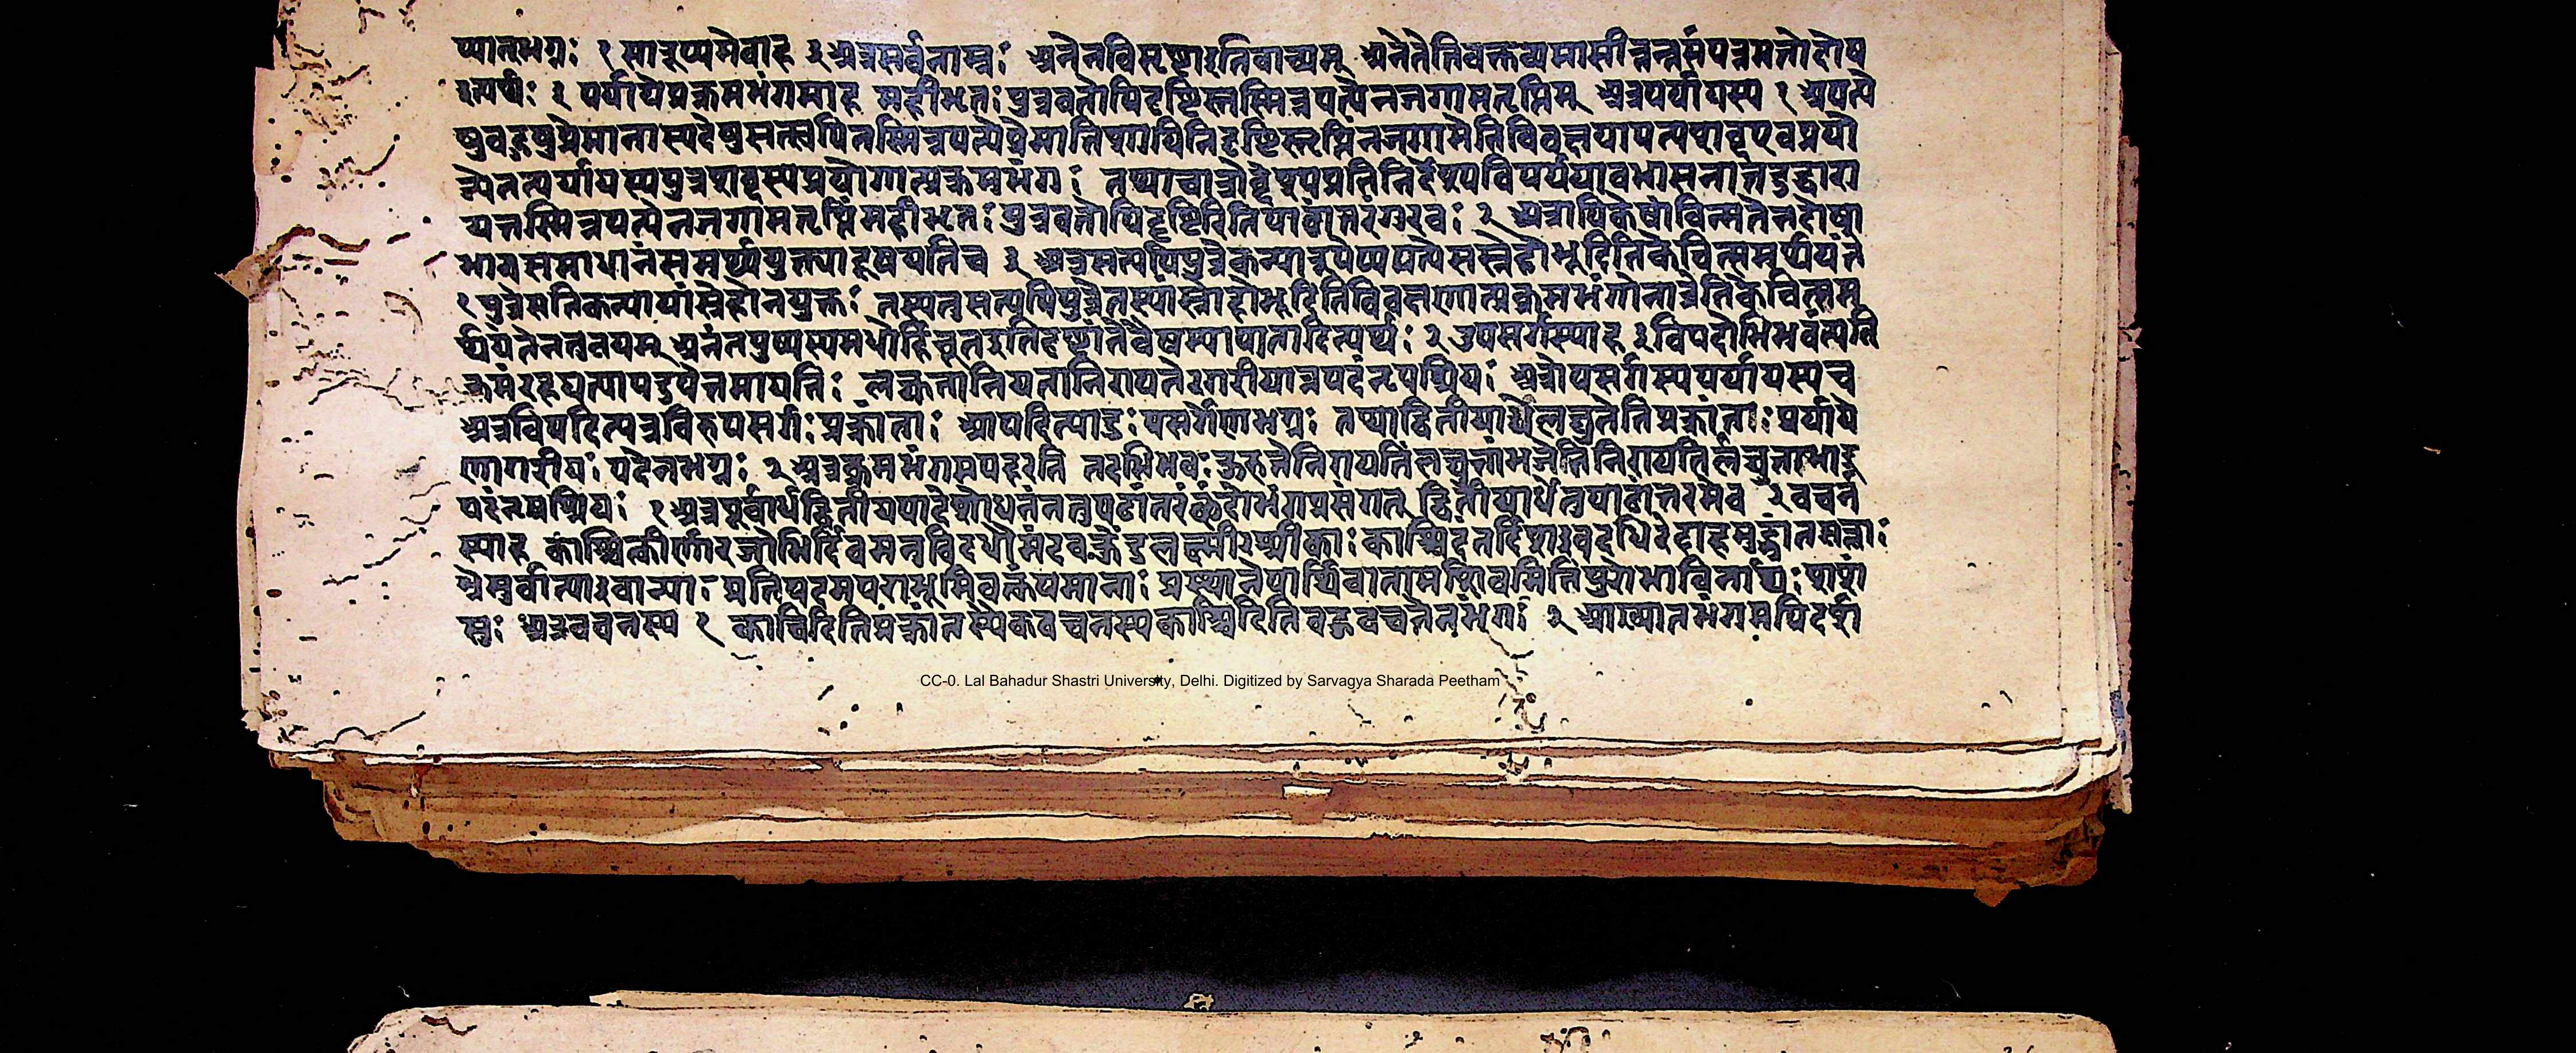 प्यातभग्नः १ सारूप्यमेवाह ३ अत्रसर्वनाम्नः अनेनविसृष्टाइतिवाच्यम् अनेतेतिवक्तव्यमासीन्नत्न्नसंपन्नमतोदोष
इत्यर्थः २ पर्यायेप्रक्रमभंगमाह महीभृतः पुत्रवतोपिदृष्टिस्तस्मिन्नपत्येनजगामतृप्तिम् अत्रपर्यायस्य १ अपत्ये
षुबहुषुप्रेमानास्पदेषुसत्स्वपितस्मिन्नपत्येप्रेमातिशायिनिदृष्टिस्तृप्तिंनजगामेतिविवक्षयापत्यशब्दएवप्रयो
ज्येतत्पर्यायस्यपुत्रशब्दस्यप्रयोगात्प्रक्रमभंगः
यत्तस्मिन्नपत्येनजगामतृप्तिंमहीभृतः पुत्रवतोपिदृष्टिरितिपाठांतरंगुरवः २ अत्रापिकेषांचिन्मतेनदोषा
भावंससमाधानंसमर्थ्ययुक्त्यादूषयतिच ३ अत्रसत्यपिपुत्रेकन्यारूपेप्यपत्येसस्नेहोभूदितिकेचित्समर्थयंते
१ पुत्रेसतिकन्यायांस्नेहोनयुक्तः तस्यतुसत्यपिपुत्रेतस्यांस्नेहोभूदितिविवक्षणात्प्रक्रमभंगोनात्रेतिकेचित्सम
र्थयंतेनतुवयम् अनंतपुष्पस्यमधोर्हिचूतइतिदृष्टांतेवैषम्यापातादित्यर्थः २ उपसर्गस्याह ३ विपदोभिभवंत्यवि
क्रमंरहयत्यापदुपेतमायतिः लघुतानियतानिरायतेरगरीयान्नपदंनृपश्रियः अत्रोपसर्गस्यपर्यायस्यच
अत्रविपदित्यत्रविरुपसर्गः प्रक्रांतः आपदित्याङुपसर्गेणभग्नः तथाद्वितीयार्धेलघुतेतिप्रक्रांतः पर्याये
णागरीयः पदेनभग्नः २ अत्रक्रमभंगमपहरति तदभिभवः कुरुतेनिरायतिंलघुतांभजतेनिरायतिर्लघुताभाङ्
पदंनृपश्रियः १ अत्रपूर्वार्धद्वितीयपादेशोधनंनतुपठांतरंछंदोभंगप्रसंगात् द्वितीयार्धेतुपाठांतरमेव २ वचन
स्याह काश्चित्कीर्णारजोभिर्दिवमनुविदधौमंदवक्रेंदुलक्ष्मीरश्रीकाः काश्चिदंतर्दिशइवदधिरेदाहमुद्भ्रांतसत्वाः
भ्रेमुर्वात्याइवान्याः प्रतिपदमपराभूमिवत्कंपमानाः प्रस्थानेपार्थिवानामशिवमितिपुरोभाविनार्यः शशं
सुः अत्रवचनस्य १ काचिदितिप्रक्रांतस्यैकवचनस्यकाश्चिदितिबहुवचनेनभंगः २ आख्यातभंगमपिदर्श
CC-0. Lal Bahadur Shastri University, Delhi. Digitized by Sarvagya Sharada Peetham